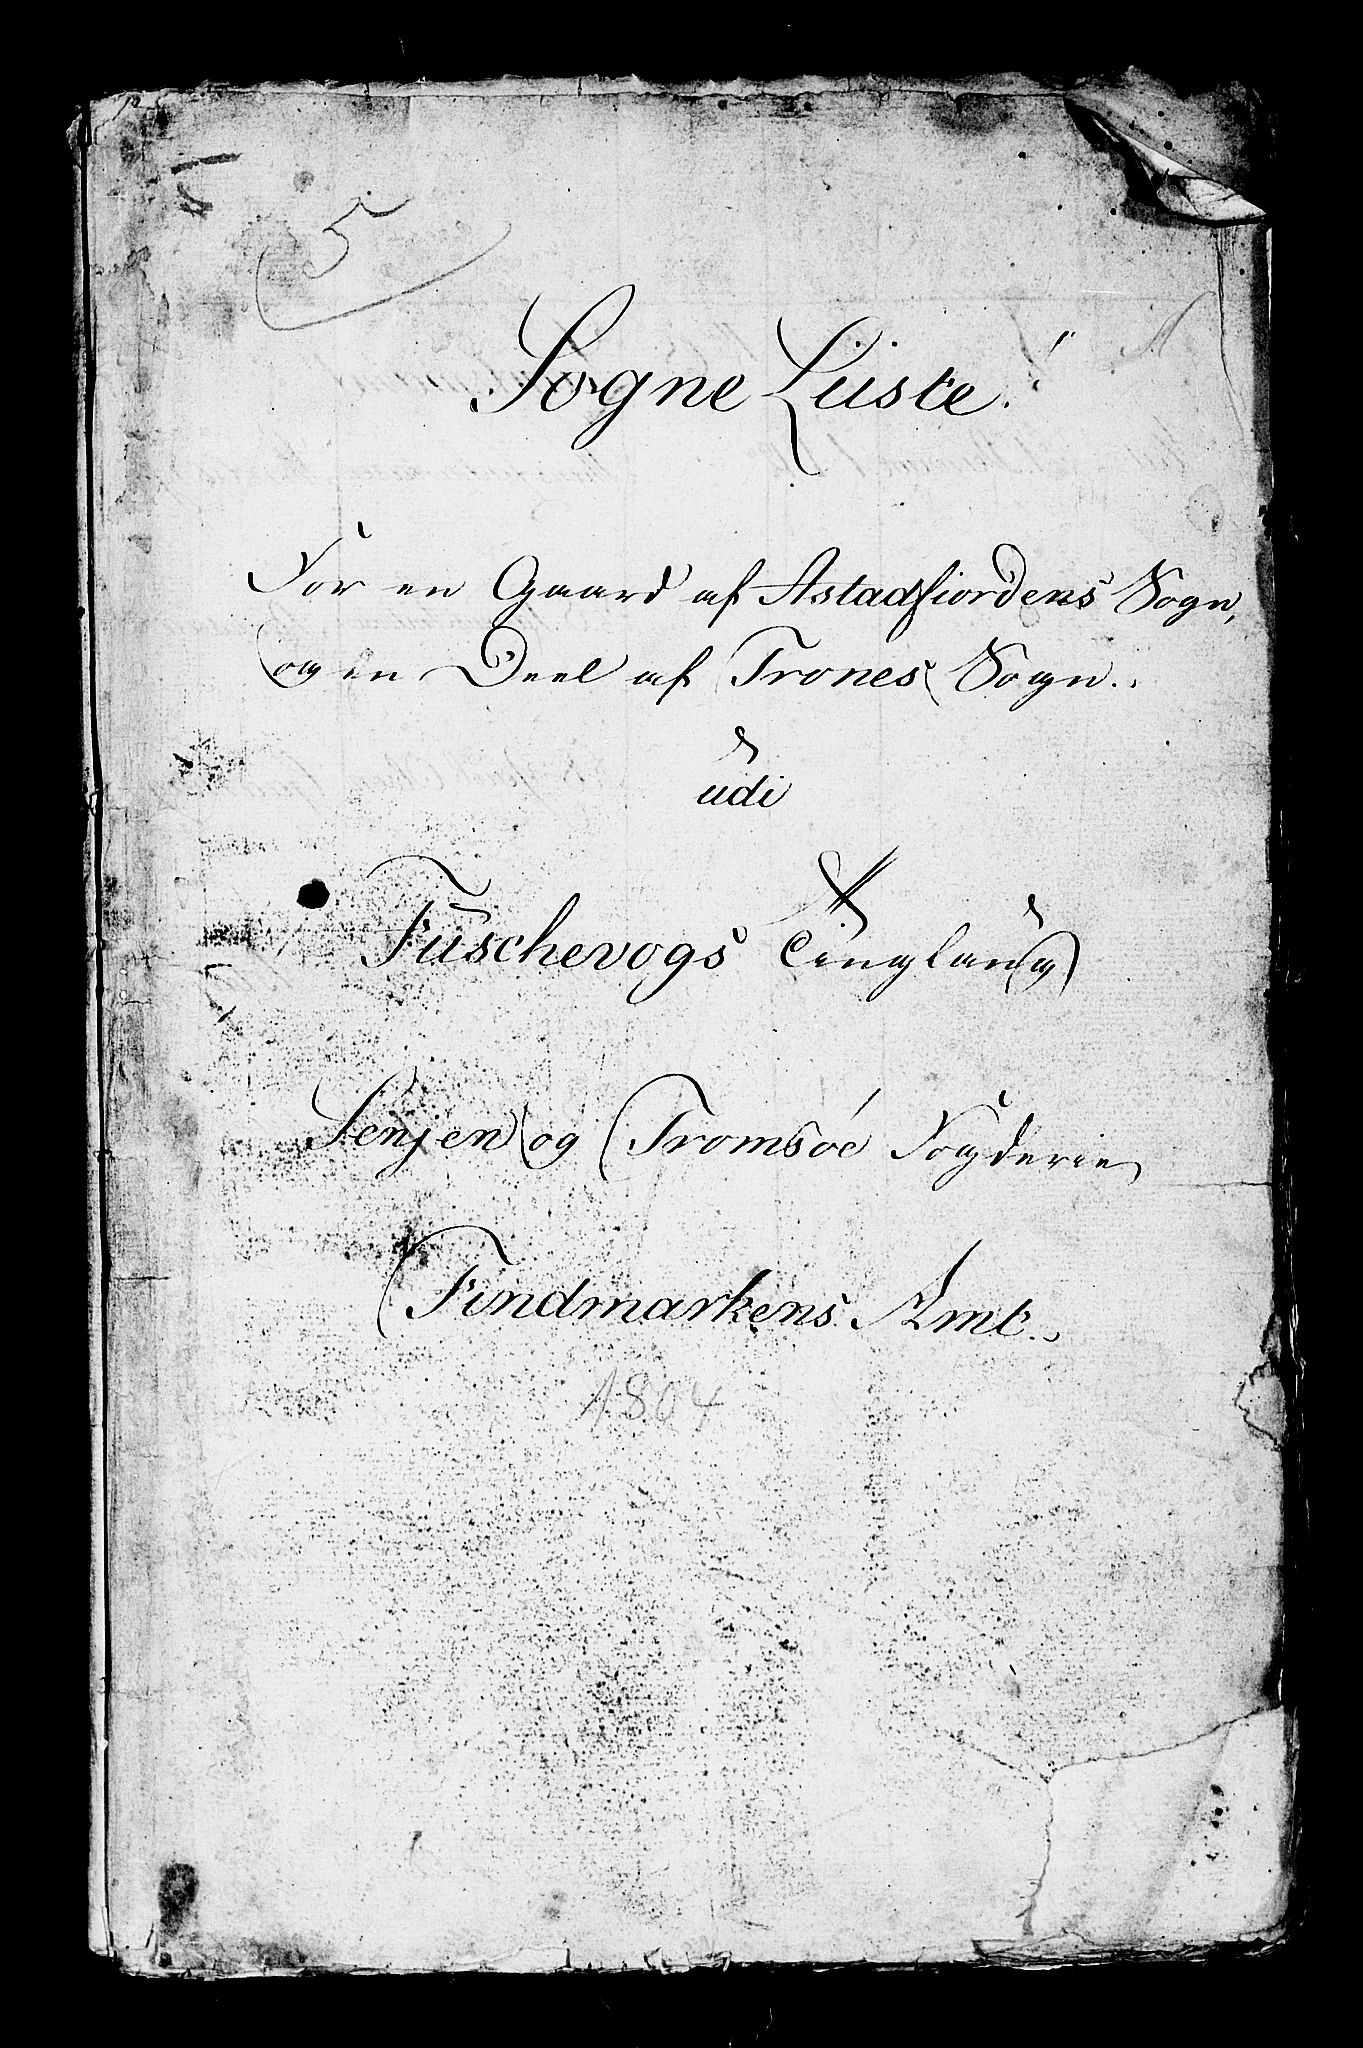 5
Sogne Liiste.
For en Gaard af Astadfiordens Sogn,
og en Deel af Trones Sogn.
udi
Fuschevogs Tinglaug
Senjen og Tromsöe Fogderie
Findmarkens Amt.
1804